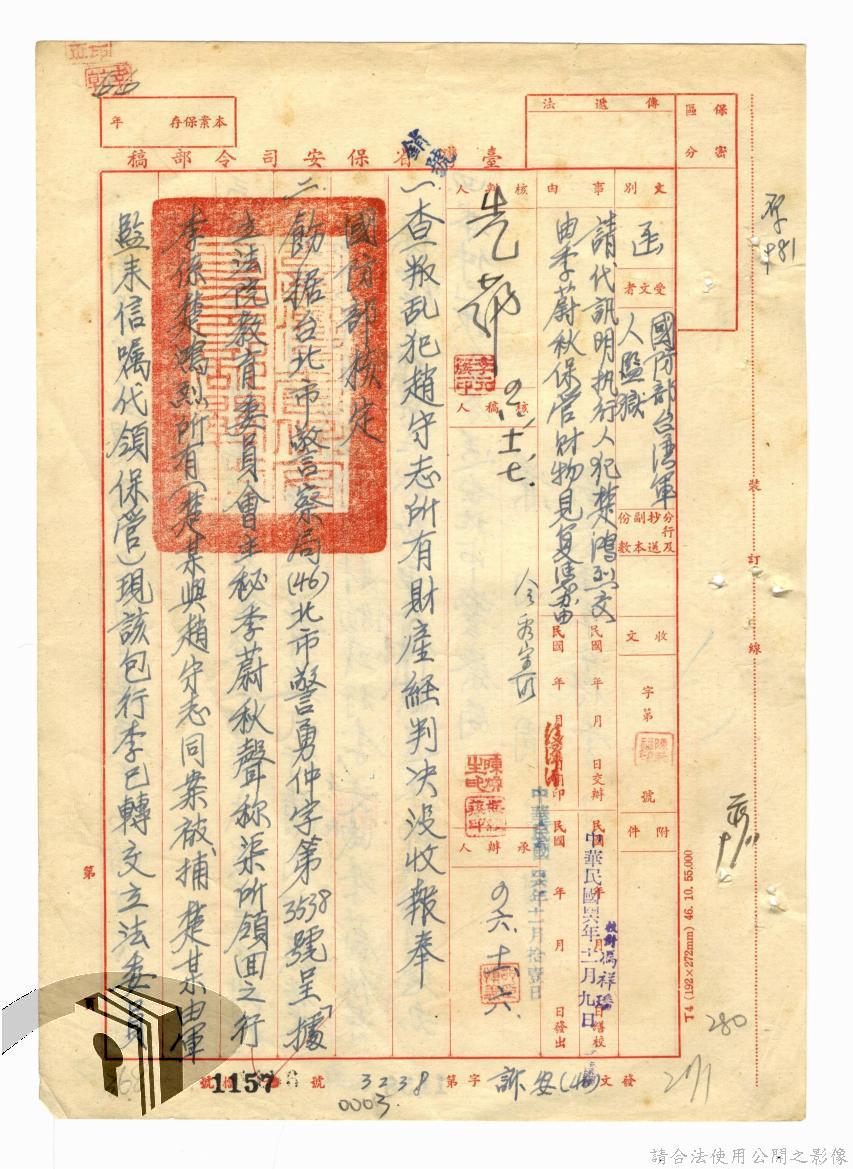 保密區分
傳遞法
本案保存 年
臺灣省保安司令部稿
銷號
文別 函
受文者 國防部台灣軍人監獄
分行及抄送副本份數
收文 字第 號
附件
事由 請代訊明執行人犯楚鴻烈交由李蔚秋保管財物見复
民國 年 月 日交辦
民國 年 月 日繕校
中華民國四六年十二月九日
校對
民國 年 月 印
民國 年 月 日發出
中華民國四六年十二月拾壹日
核判人
核稿人
承辦人
一、查叛乱犯趙守志所有財產経判决没收報奉
國防部核定
二、飭据台北市警察局(46)北市警勇仲字第3538號呈「據
立法院教育委員會主秘李蔚秋聲称渠所領囬之行
李係楚鴻烈所有(楚某與趙守志同案被捕楚某由軍
監来信囑代領保管)現該包行李已轉交立法委員
發文(46)安訴字第3238號
1157
0003
裝訂線
T4 (192×272mm) 46. 10. 55,000
280
請合法使用公開之影像